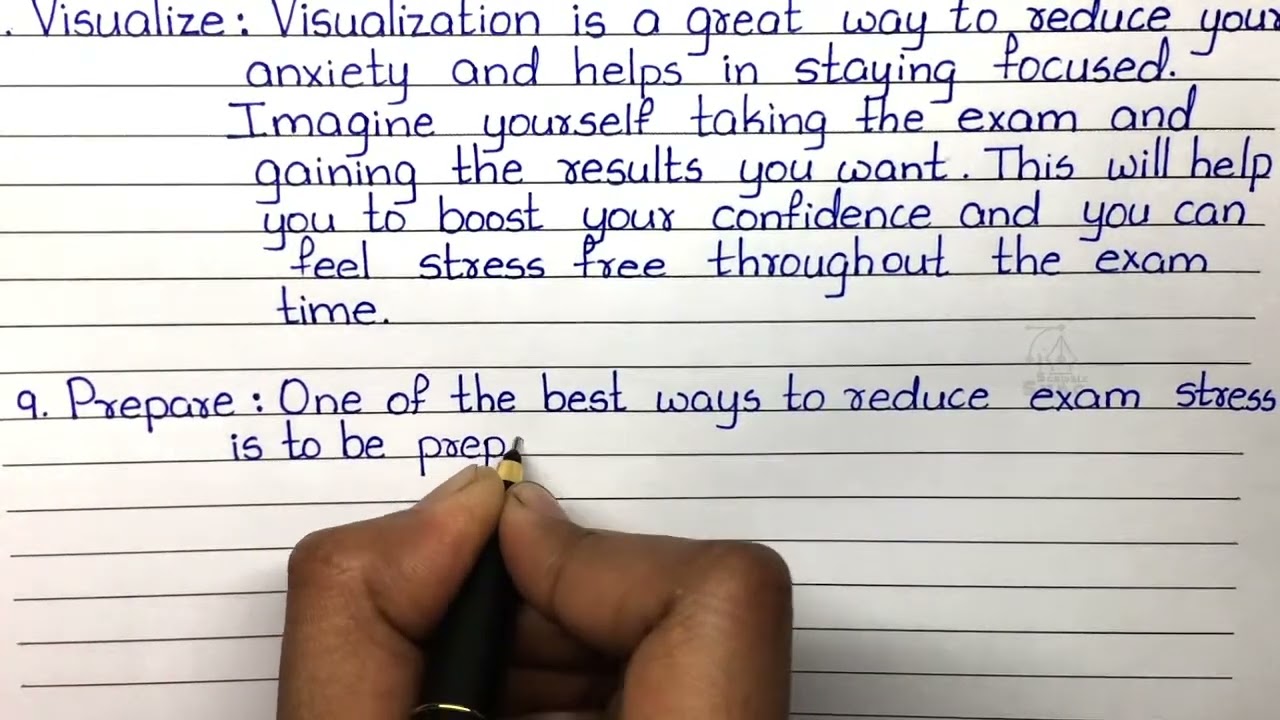 . Visualize: Visualization is a great way to reduce your
anxiety and helps in staying focused.
Imagine yourself taking the exam and
gaining the results you want. This will help
you to boost your confidence and you can
feel stress free throughout the exam
time.
9. Prepare: One of the best ways to reduce exam stress
is to be prep